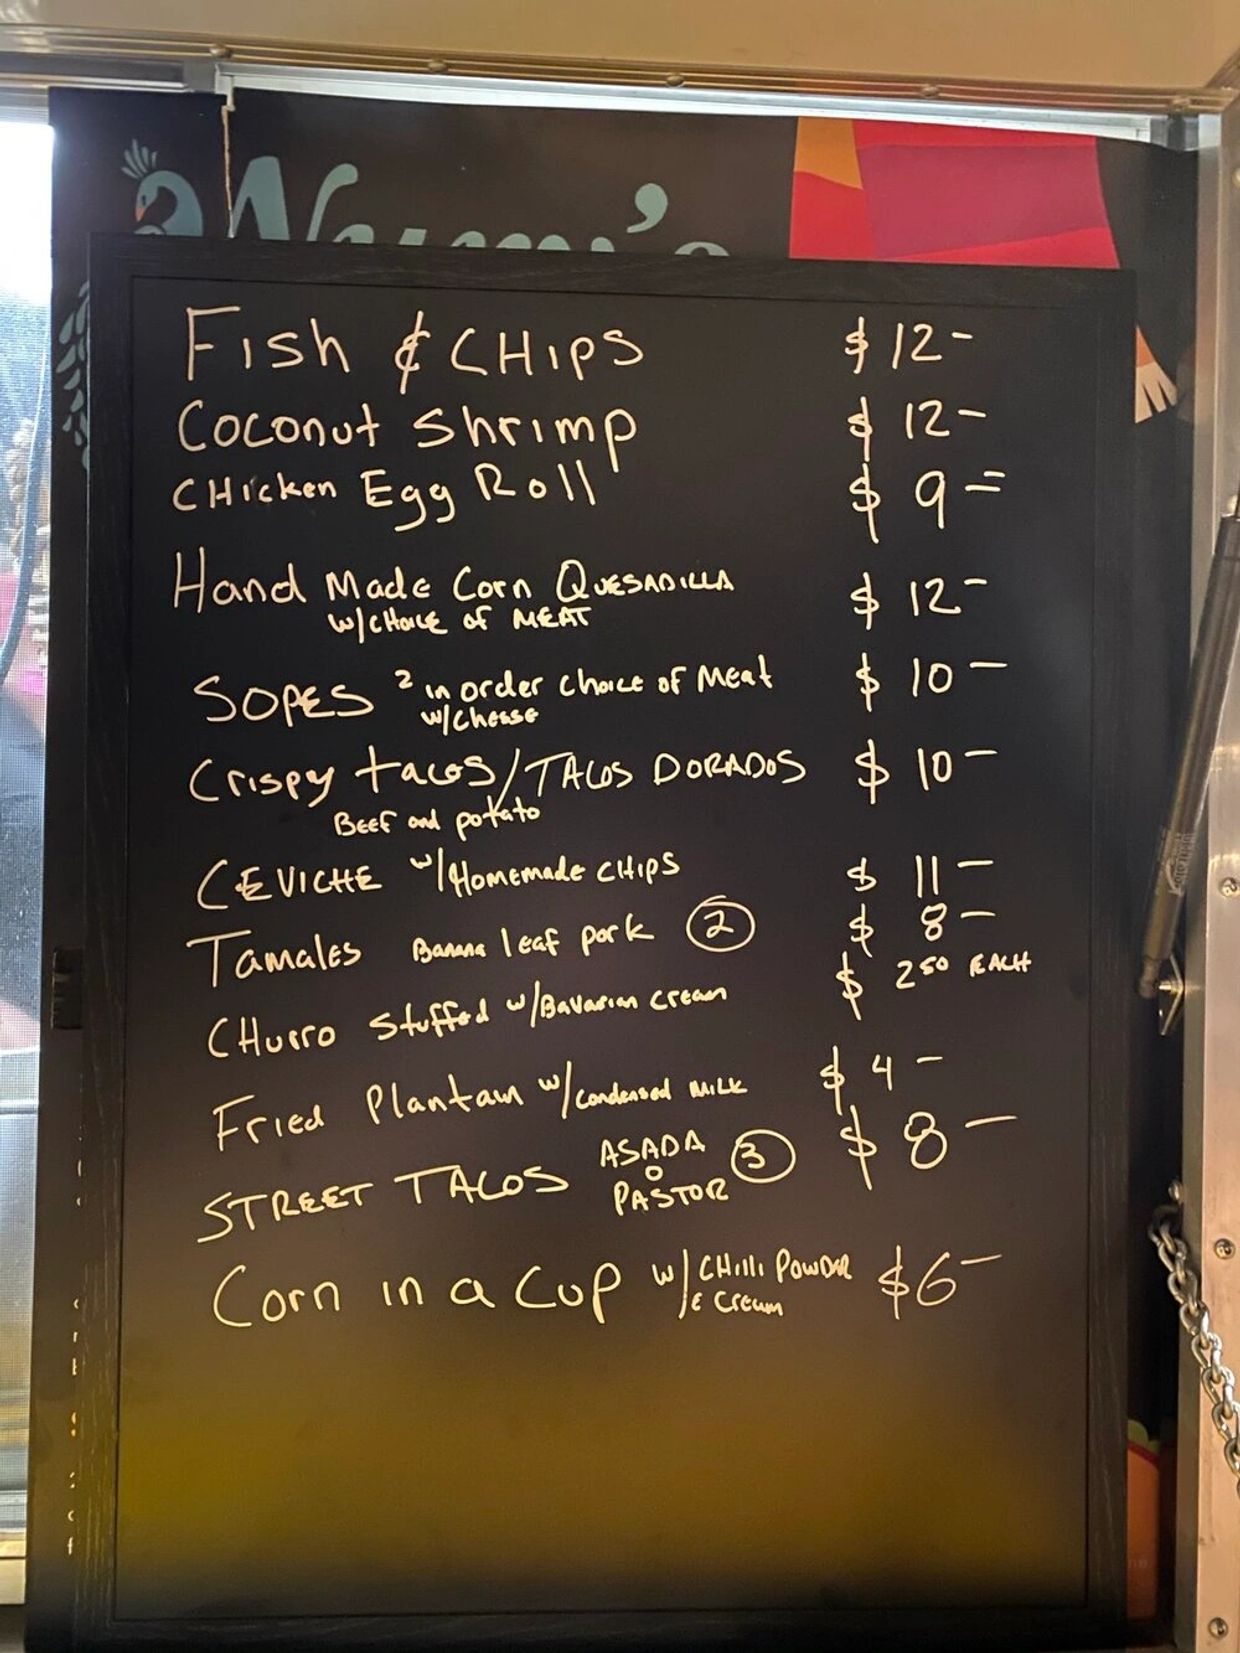 Fish & CHIPS $12-
Coconut Shrimp $12-
CHicken Egg Roll $9=
Hand Made Corn QUESADILLA $12-
w/CHOICE of MEAT
SOPES 2 in order choice of Meat $10-
w/Chesse
Crispy tacos/TACOS DORADOS $10-
BEEF and potato
CEVICHE w/Homemade CHIPS $11-
Tamales Banana leaf pork 2 $8-
CHurro Stuffed w/Bavarian cream $2 50 EACH
Fried Plantain w/condensed MILK $4-
STREET TACOS ASADA O PASTOR 3 $8-
Corn in a Cup w/CHilli POWDER $6-
& Cream